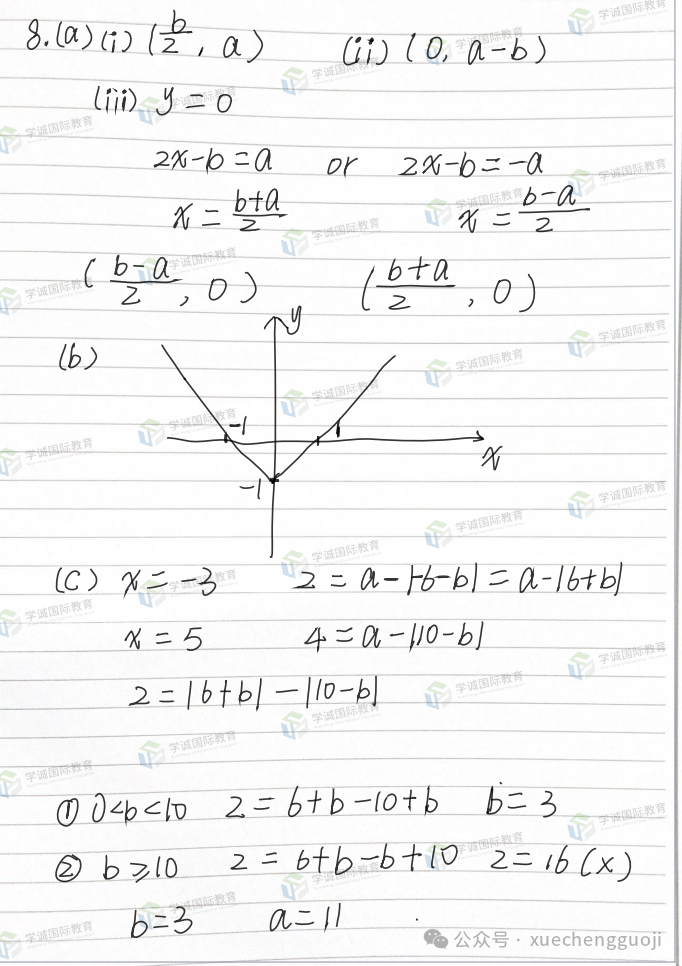 8.(a)(i) (b/2, a) (ii) (0, a-b)
(iii) y = 0
2x-b = a or 2x-b = -a
x = (b+a)/2 x = (b-a)/2
((b-a)/2, 0) ((b+a)/2, 0)
(b)
y
-1 1
x
-1
(c) x = -3 2 = a-|-6-b| = a-|6+b|
x = 5 4 = a-|10-b|
2 = |6+b| - |10-b|
① 0<b<10 2 = 6+b-10+b b = 3
② b≥10 2 = 6+b-b+10 2 = 16 (x)
b=3 a=11
公众号 · xuechengguoji
学诚国际教育